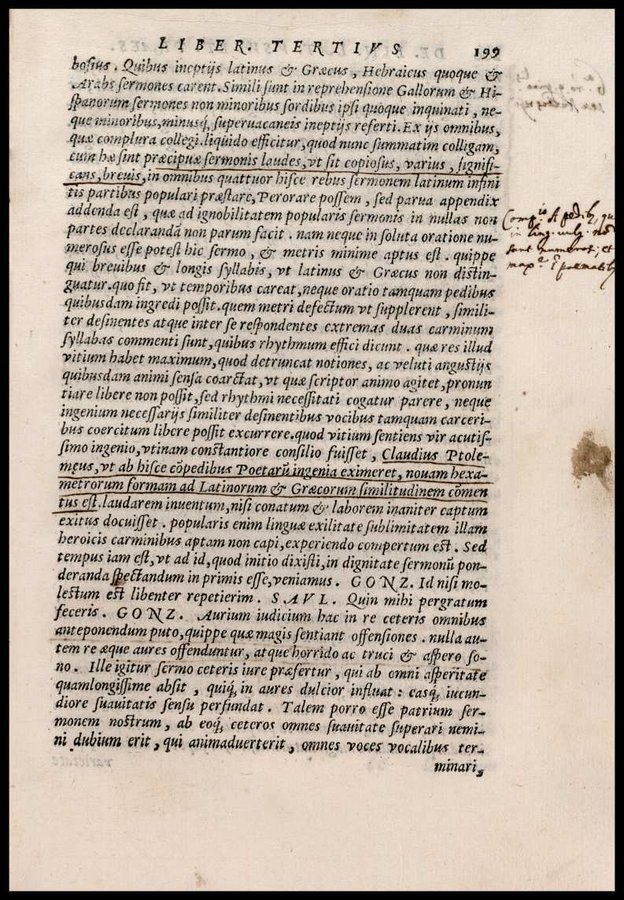 LIBER. TERTIVS 199
bosius. Quibus ineptijs latinus & Græcus, Hebraicus quoque &
Arabs sermones carent. Simili sunt in reprehensione Gallorum & Hi-
spanorum sermones non minoribus sordibus ipsi quoque inquinati, ne-
que minoribus, minusq́, superuacaneis ineptijs referti. Ex ijs omnibus,
quæ complura collegi. liquido efficitur, quod nunc summatim colligam,
cum hæ sint præcipuæ sermonis laudes, vt sit copiosus, varius, signifi-
cans, breuis, in omnibus quattuor hisce rebus sermonem latinum infini
tis partibus populari præstare, Perorare possem, sed parua appendix
addenda est, quæ ad ignobilitatem popularis sermonis in nullas non
partes declarandã non parum facit. nam neque in soluta oratione nu-
merosus esse potest hic sermo, & metris minime aptus est. quippe
qui breuibus & longis syllabis, vt latinus & Græcus non distin-
guatur. quo fit, vt temporibus careat, neque oratio tamquam pedibus
quibusdam ingredi possit. quem metri defectum vt supplerent, simili-
ter desinentes atque inter se respondentes extremas duas carminum
syllabas commenti sunt, quibus rhythmum effici dicunt. quæ res illud
vitium habet maximum, quod detruncat notiones, ac veluti angustijs
quibusdam animi sensa coarctat, vt quæ scriptor animo agitet, pronun
tiare libere non possit, sed rhythmi necessitati cogatur parere, neque
ingenium necessarijs similiter desinentibus vocibus tamquam carceri-
bus coercitum libere possit excurrere. quod vitium sentiens vir acutis-
simo ingenio, vtinam constantiore consilio fuisset, Claudius Ptole-
męus, vt ab hisce cõpedibus Poetarũ ingenia eximeret, nouam hexa-
metrorum formam ad Latinorum & Græcorum similitudinem cõmen
tus est. laudarem inuentum, nisi conatum & laborem inaniter captum
exitus docuisset. popularis enim linguæ exilitate sublimitatem illam
heroicis carminibus aptam non capi, experiendo compertum est. Sed
tempus iam est, vt ad id, quod initio dixisti, in dignitate sermonũ pon-
deranda spectandum in primis esse, veniamus. GONZ. Id nisi mo-
lestum est libenter repetierim. SAVL. Quin mihi pergratum
feceris. GONZ. Aurium iudicium hac in re ceteris omnibus
anteponendum puto, quippe quæ magis sentiant offensiones. nulla au-
tem re æque aures offenduntur, atque horrido ac truci & aspero so-
no. Ille igitur sermo ceteris iure præfertur, qui ab omni asperitate
quamlongissime absit, quiq́, in aures dulcior influat: easq́, iucun-
diore suauitatis sensu perfundat. Talem porro esse patrium ser-
monem nostrum, ab eoq́, ceteros omnes suauitate superari nemi-
ni dubium erit, qui animaduerterit, omnes voces vocalibus ter-
minari,
in ling. vulg. nõ
sunt numerosi; et